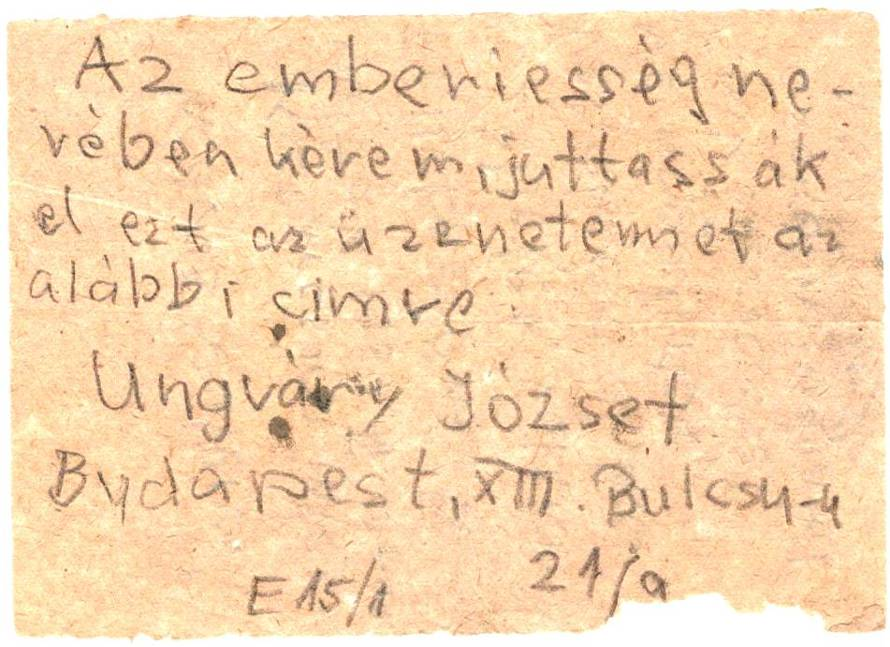 Az emberiesség ne-
vében kérem, juttassák
el ezt az üzenetemet az
alábbi címre.
Ungváry József
Budapest, XIII. Bulcsu-u
21/a
E 15/1